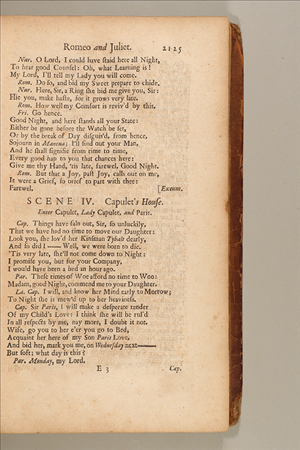 Romeo and Juliet. 2125
Nur. O Lord, I could have staid here all Night,
To hear good Counsel: Oh, what Learning is!
My Lord, I'll tell my Lady you will come.
Rom. Do so, and bid my Sweet prepare to chide.
Nur. Here, Sir, a Ring she bid me give you, Sir:
Hie you, make haste, for it grows very late.
Rom. How well my Comfort is reviv'd by this.
Fri. Go hence.
Good Night, and here stands all your State:
Either be gone before the Watch be set,
Or by the break of Day disguis'd, from hence,
Sojourn in Mantua; I'll find out your Man,
And he shall signifie from time to time,
Every good hap to you that chances here:
Give me thy Hand, 'tis late, farewel, Good Night.
Rom. But that a Joy, past Joy, calls out on me,
It were a Grief, so brief to part with thee:
Farewel. [Exeunt.
SCENE IV. Capulet's House.
Enter Capulet, Lady Capulet, and Paris.
Cap. Things have faln out, Sir, so unluckily,
That we have had no time to move our Daughter:
Look you, she lov'd her Kinsman Tybalt dearly,
And so did I—— Well, we were born to die.
'Tis very late, she'll not come down to Night:
I promise you, but for your Company,
I would have been a bed an hour ago.
Par. These times of Woe afford no time to Woo:
Madam, good Night, commend me to your Daughter.
La. Cap. I will, and know her Mind early to Morrow;
To Night she is mew'd up to her heaviness.
Cap. Sir Paris, I will make a desperate tender
Of my Child's Love: I think she will be rul'd
In all respects by me, nay more, I doubt it not.
Wife, go you to her e'er you go to Bed,
Acquaint her here of my Son Paris Love,
And bid her, mark you me, on Wednesday next——
But soft; what day is this?
Par. Munday, my Lord.
E 3 Cap.